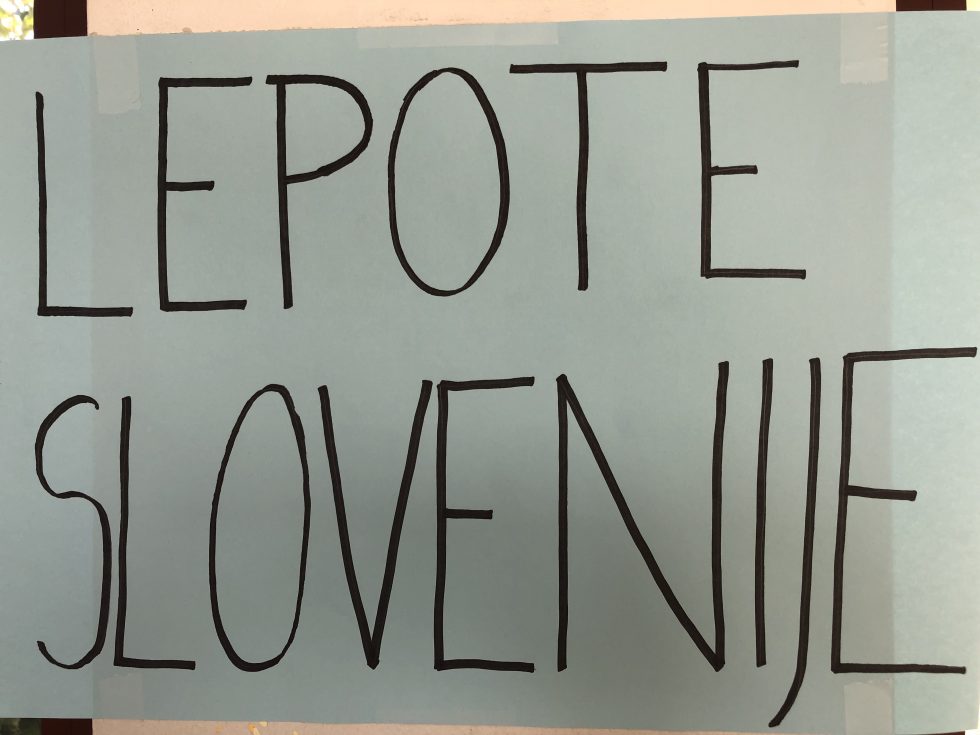 LEPOTE
SLOVENIJE